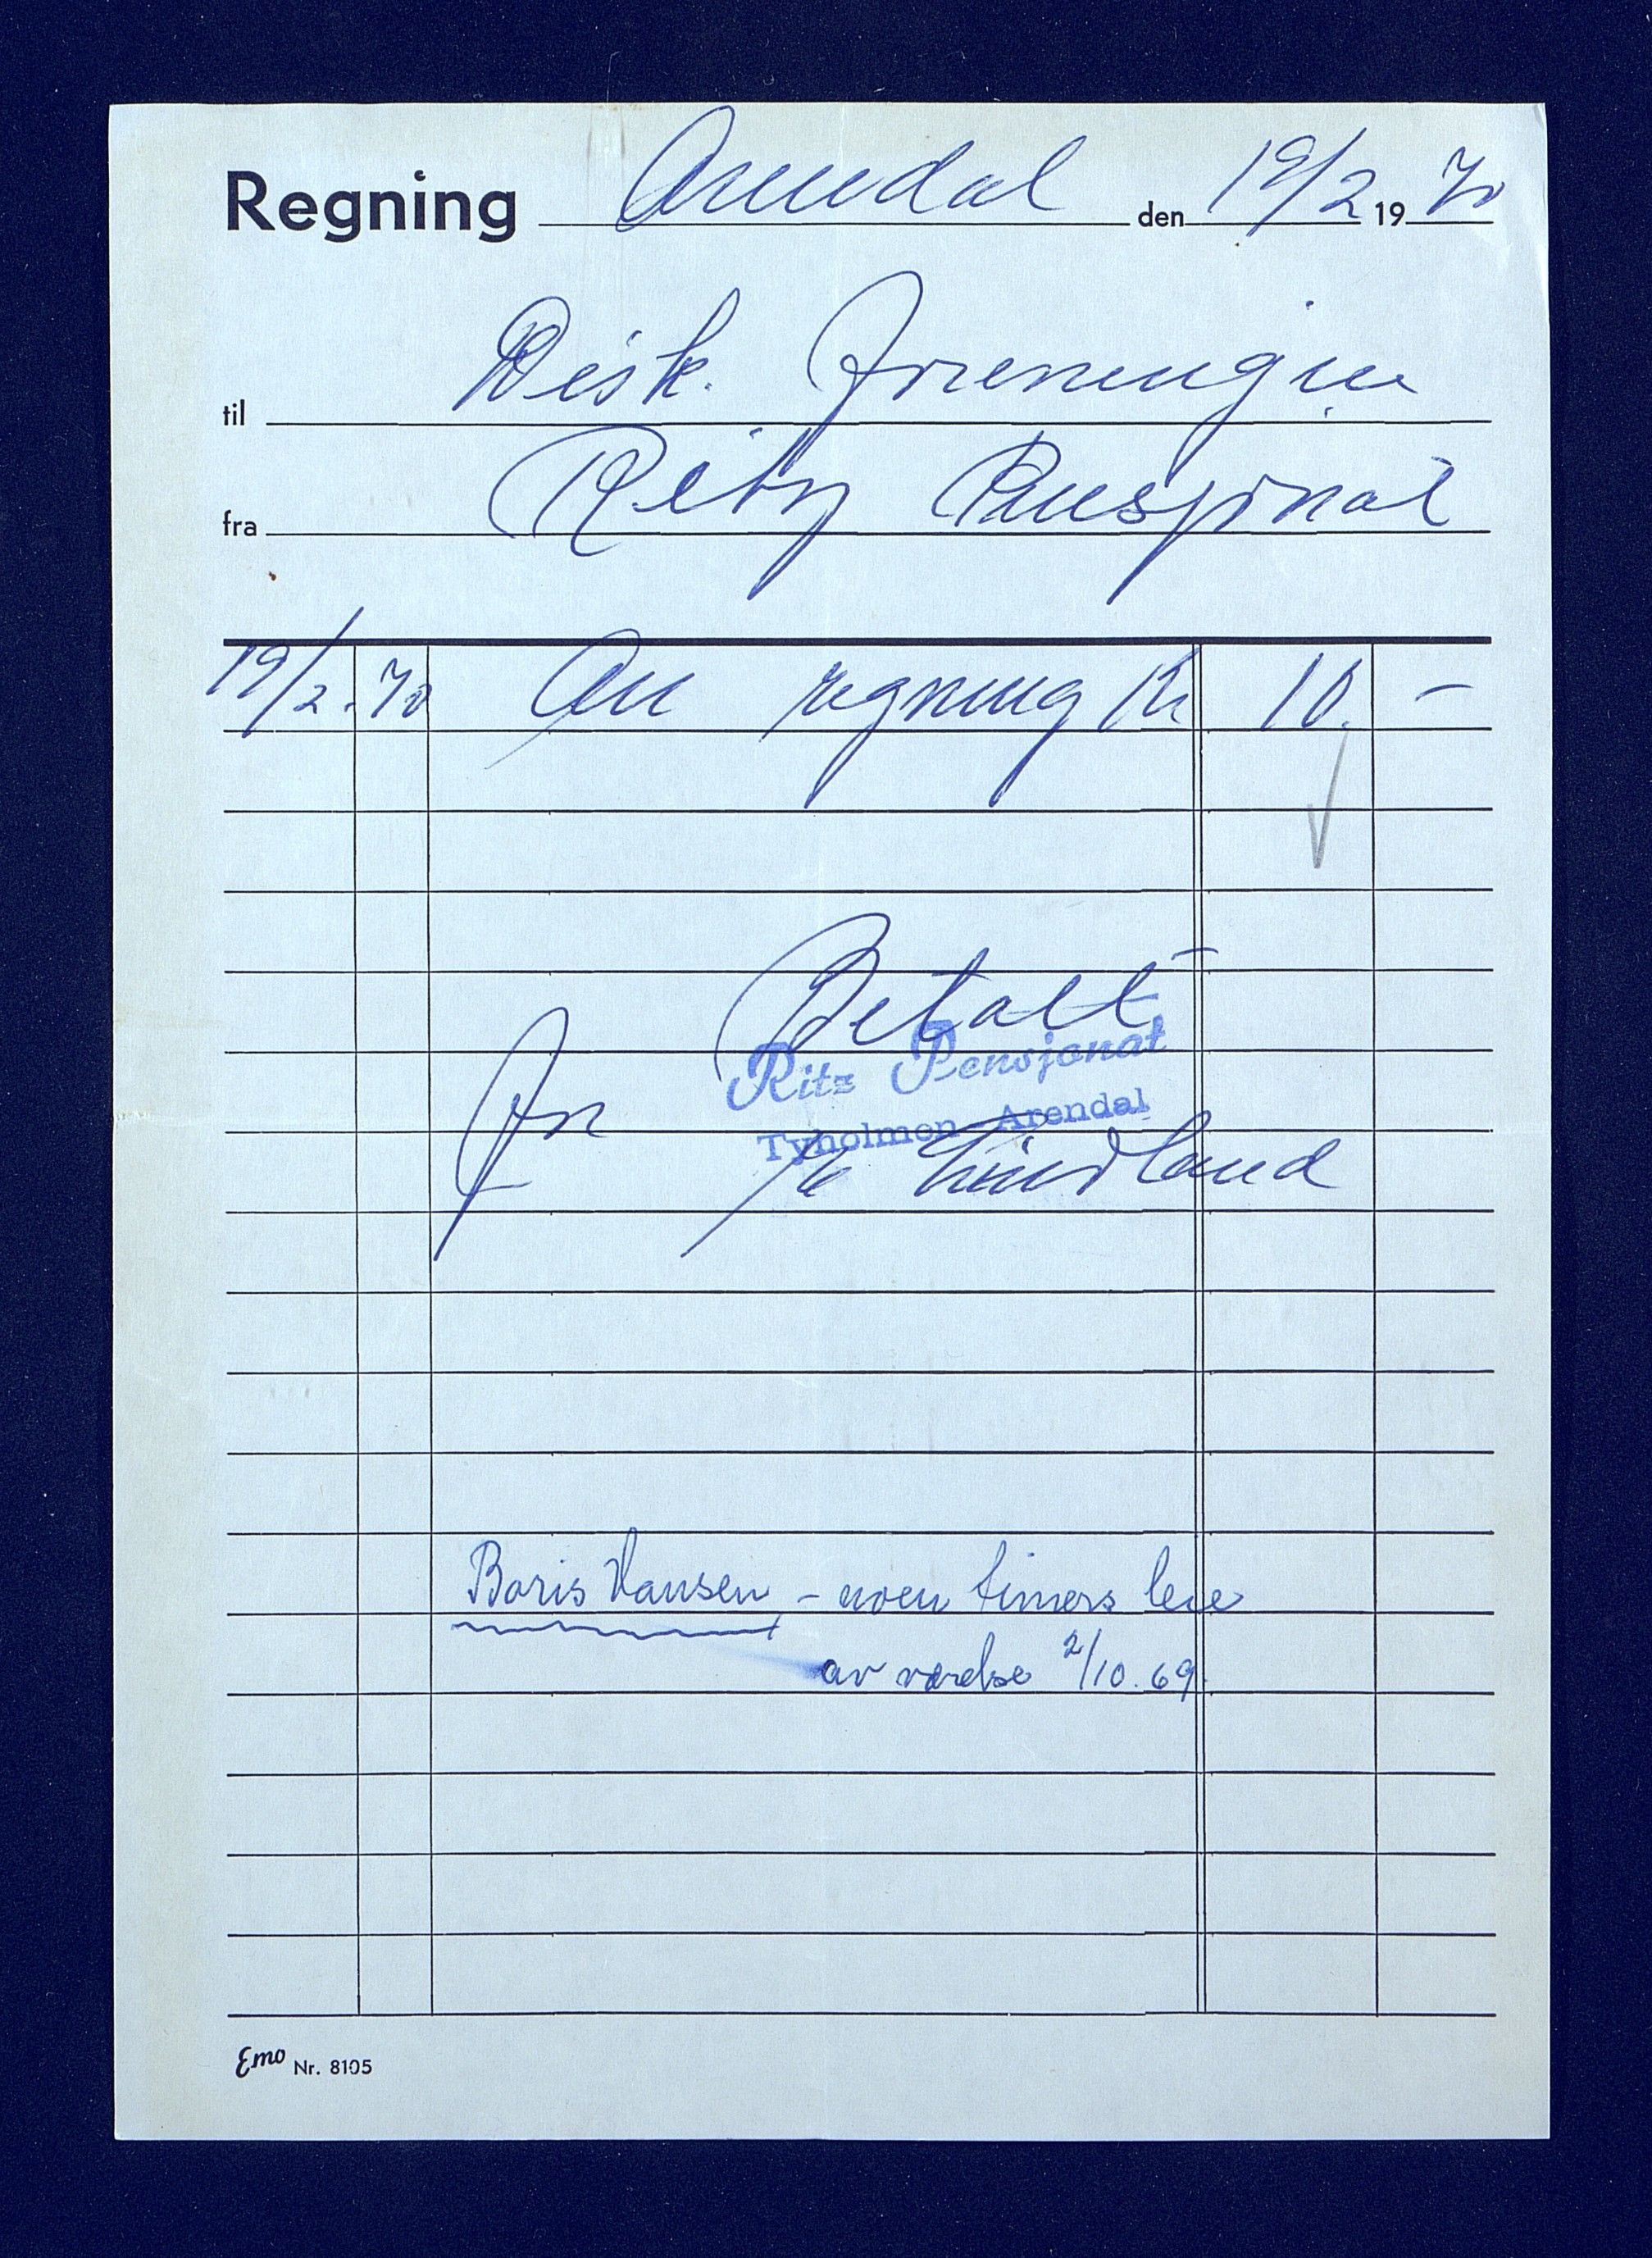 Regning Arendal den 19/2 1970
til Disk. foreningen
fra Ritz Pensjonat
19/2. 70 An regning Kr 10. –
Betalt
Ritz Pensjonat
for
Tyholmen - Arendal
Boris Hansen – noen timers leie
av værelse 2/10. 69
Emo Nr. 8105